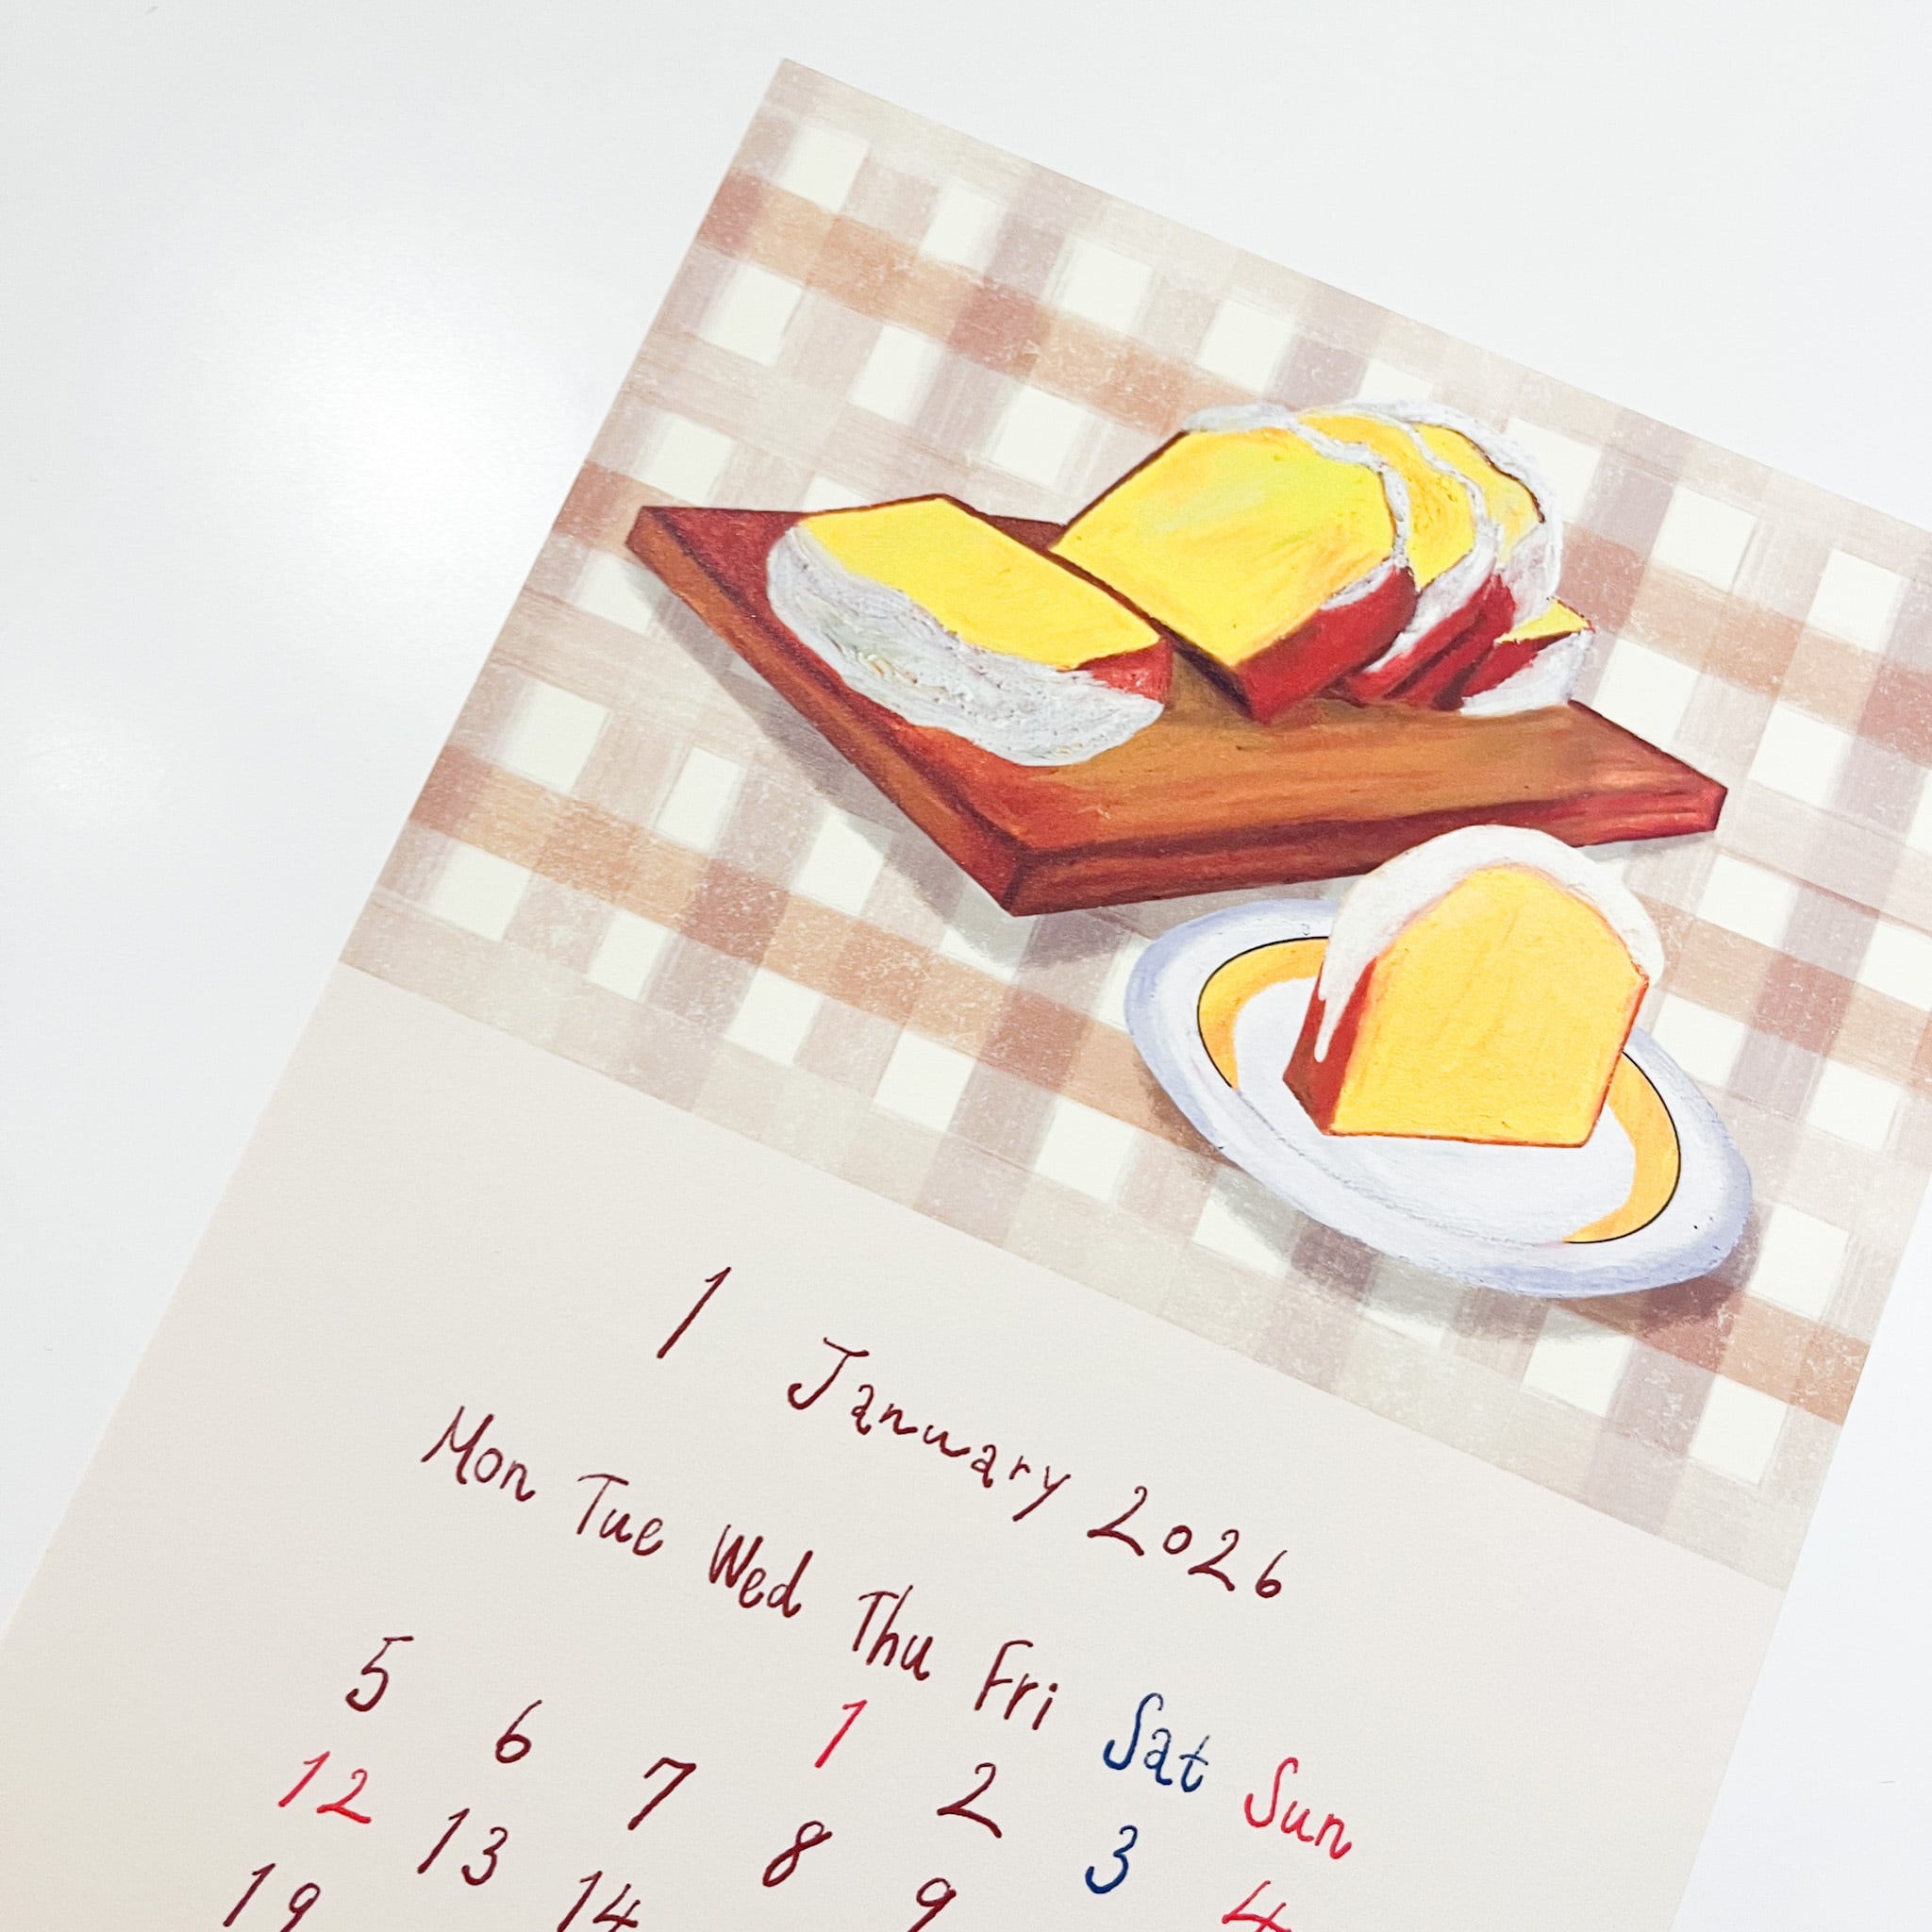 1 January 2026
Mon Tue Wed Thu Fri Sat Sun
1 2 3 4
5 6 7 8 9
12 13 14
19